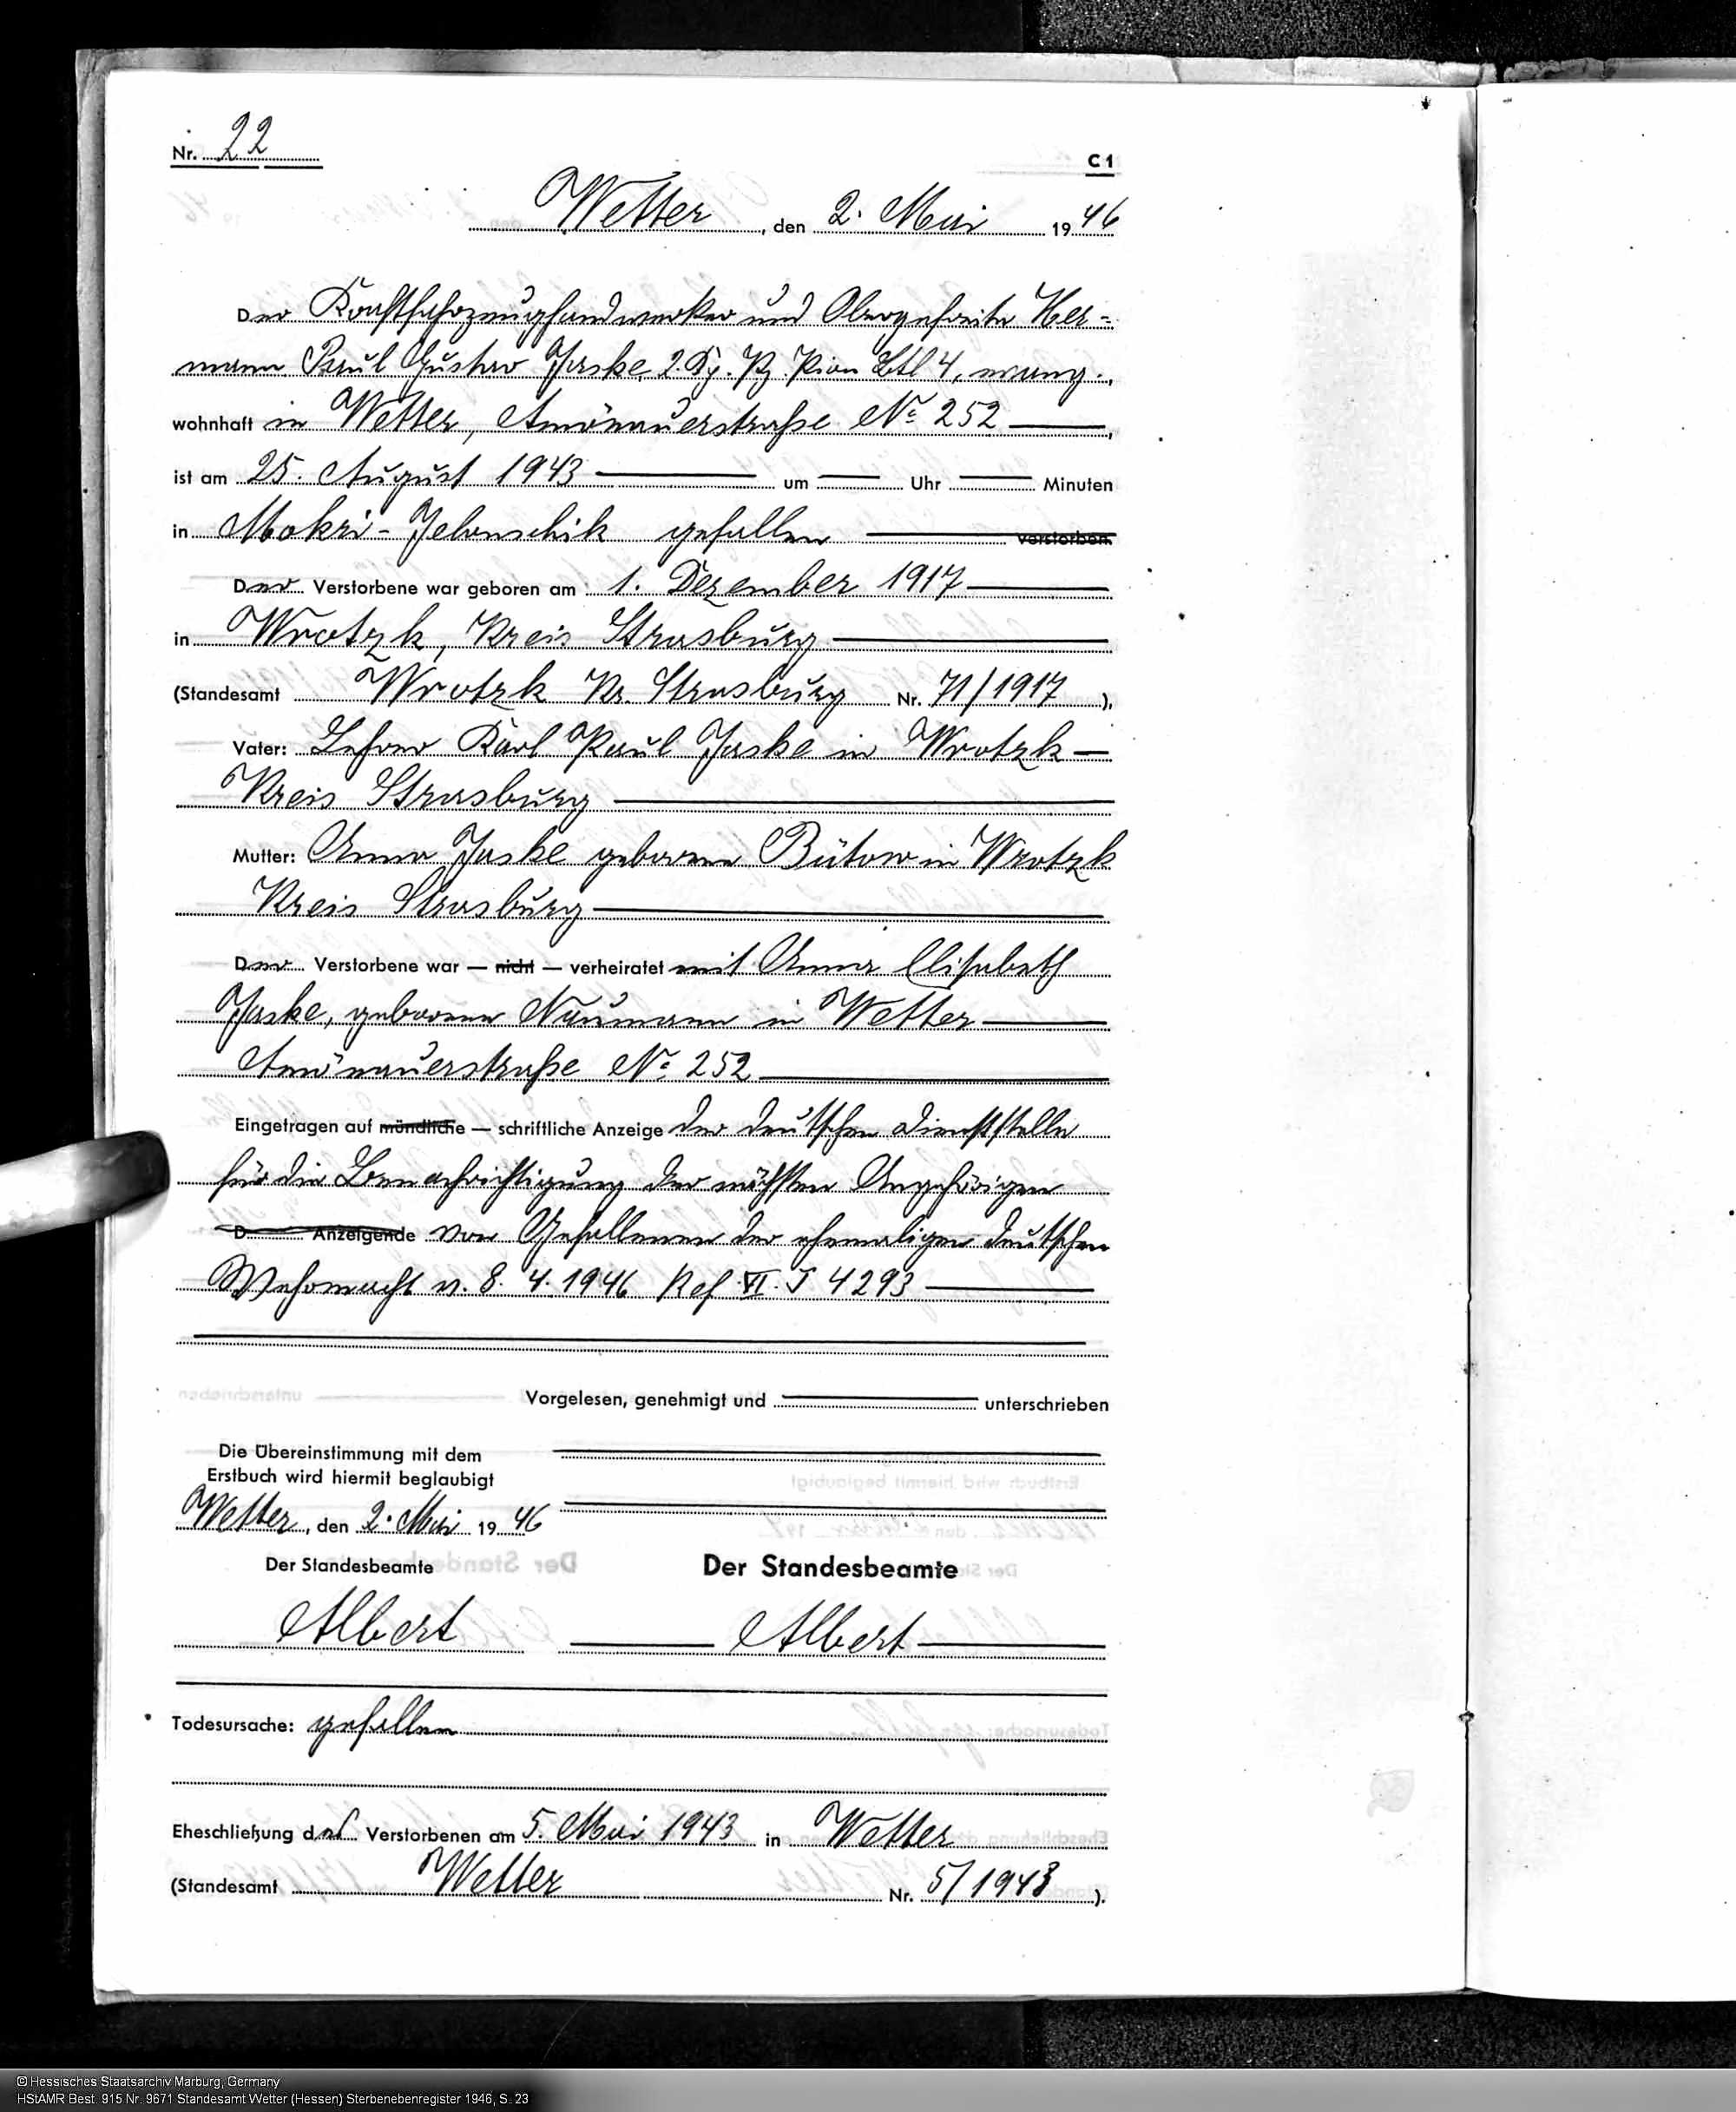 Nr. 22
C 1
Wetter, den 2. Mai 1946
Der Kraftfahrzeughandwerker und Obergefreite Her-
mann Paul Gustav Jaske, 2. Kp. Pz. Pion Btl 4, evang.,
wohnhaft in Wetter, Amönauerstraße No 252
ist am 25. August 1943 um Uhr Minuten
in Mokri-Jelantschik gefallen verstorben.
Der Verstorbene war geboren am 1. Dezember 1917
in Wrotzk, Kreis Strasburg
(Standesamt Wrotzk Kr. Strasburg Nr. 71/1917 ),
Vater: Lehrer Karl Paul Jaske in Wrotzk
Kreis Strasburg
Mutter: Anna Jaske geborene Bütow in Wrotzk
Kreis Strasburg
Der Verstorbene war — nicht — verheiratet mit Anna Elisabeth
Jaske, geborene Naumann in Wetter
Amönauerstraße No 252
Eingetragen auf mündliche — schriftliche Anzeige der deutschen Dienststelle
für die Benachrichtigung der nächsten Angehörigen
D Anzeigende von Gefallenen der ehemaligen deutschen
Wehrmacht v. 8. 4. 1946 Ref. VI. J 4293
Vorgelesen, genehmigt und unterschrieben
Die Übereinstimmung mit dem
Erstbuch wird hiermit beglaubigt
Wetter, den 2. Mai 1946
Der Standesbeamte
Der Standesbeamte
Albert
Albert
Todesursache: gefallen
Eheschließung des Verstorbenen am 5. Mai 1943 in Wetter
(Standesamt Wetter Nr. 5/1943 ).
© Hessisches Staatsarchiv Marburg, Germany
HStAMR Best. 915 Nr. 9671 Standesamt Wetter (Hessen) Sterbenebenregister 1946, S. 23